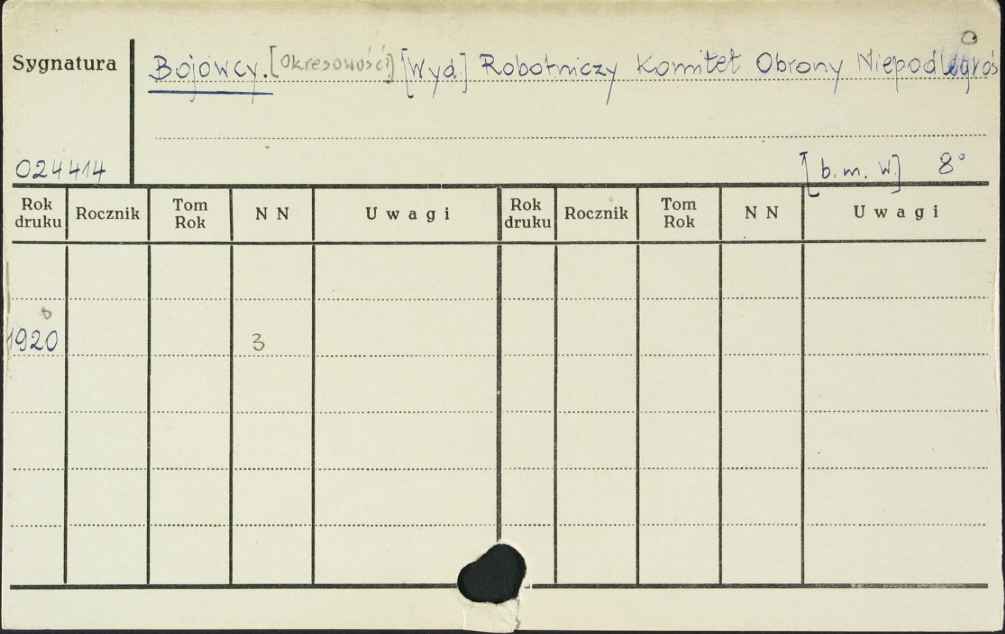 Sygnatura
Bojowcy. [Okresowość] [Wyd.] Robotniczy Komitet Obrony
024414
[b. m. w.] 8°
Rok druku Rocznik Tom Rok N N Uwagi Rok druku Rocznik Tom Rok N N Uwagi
1920 3